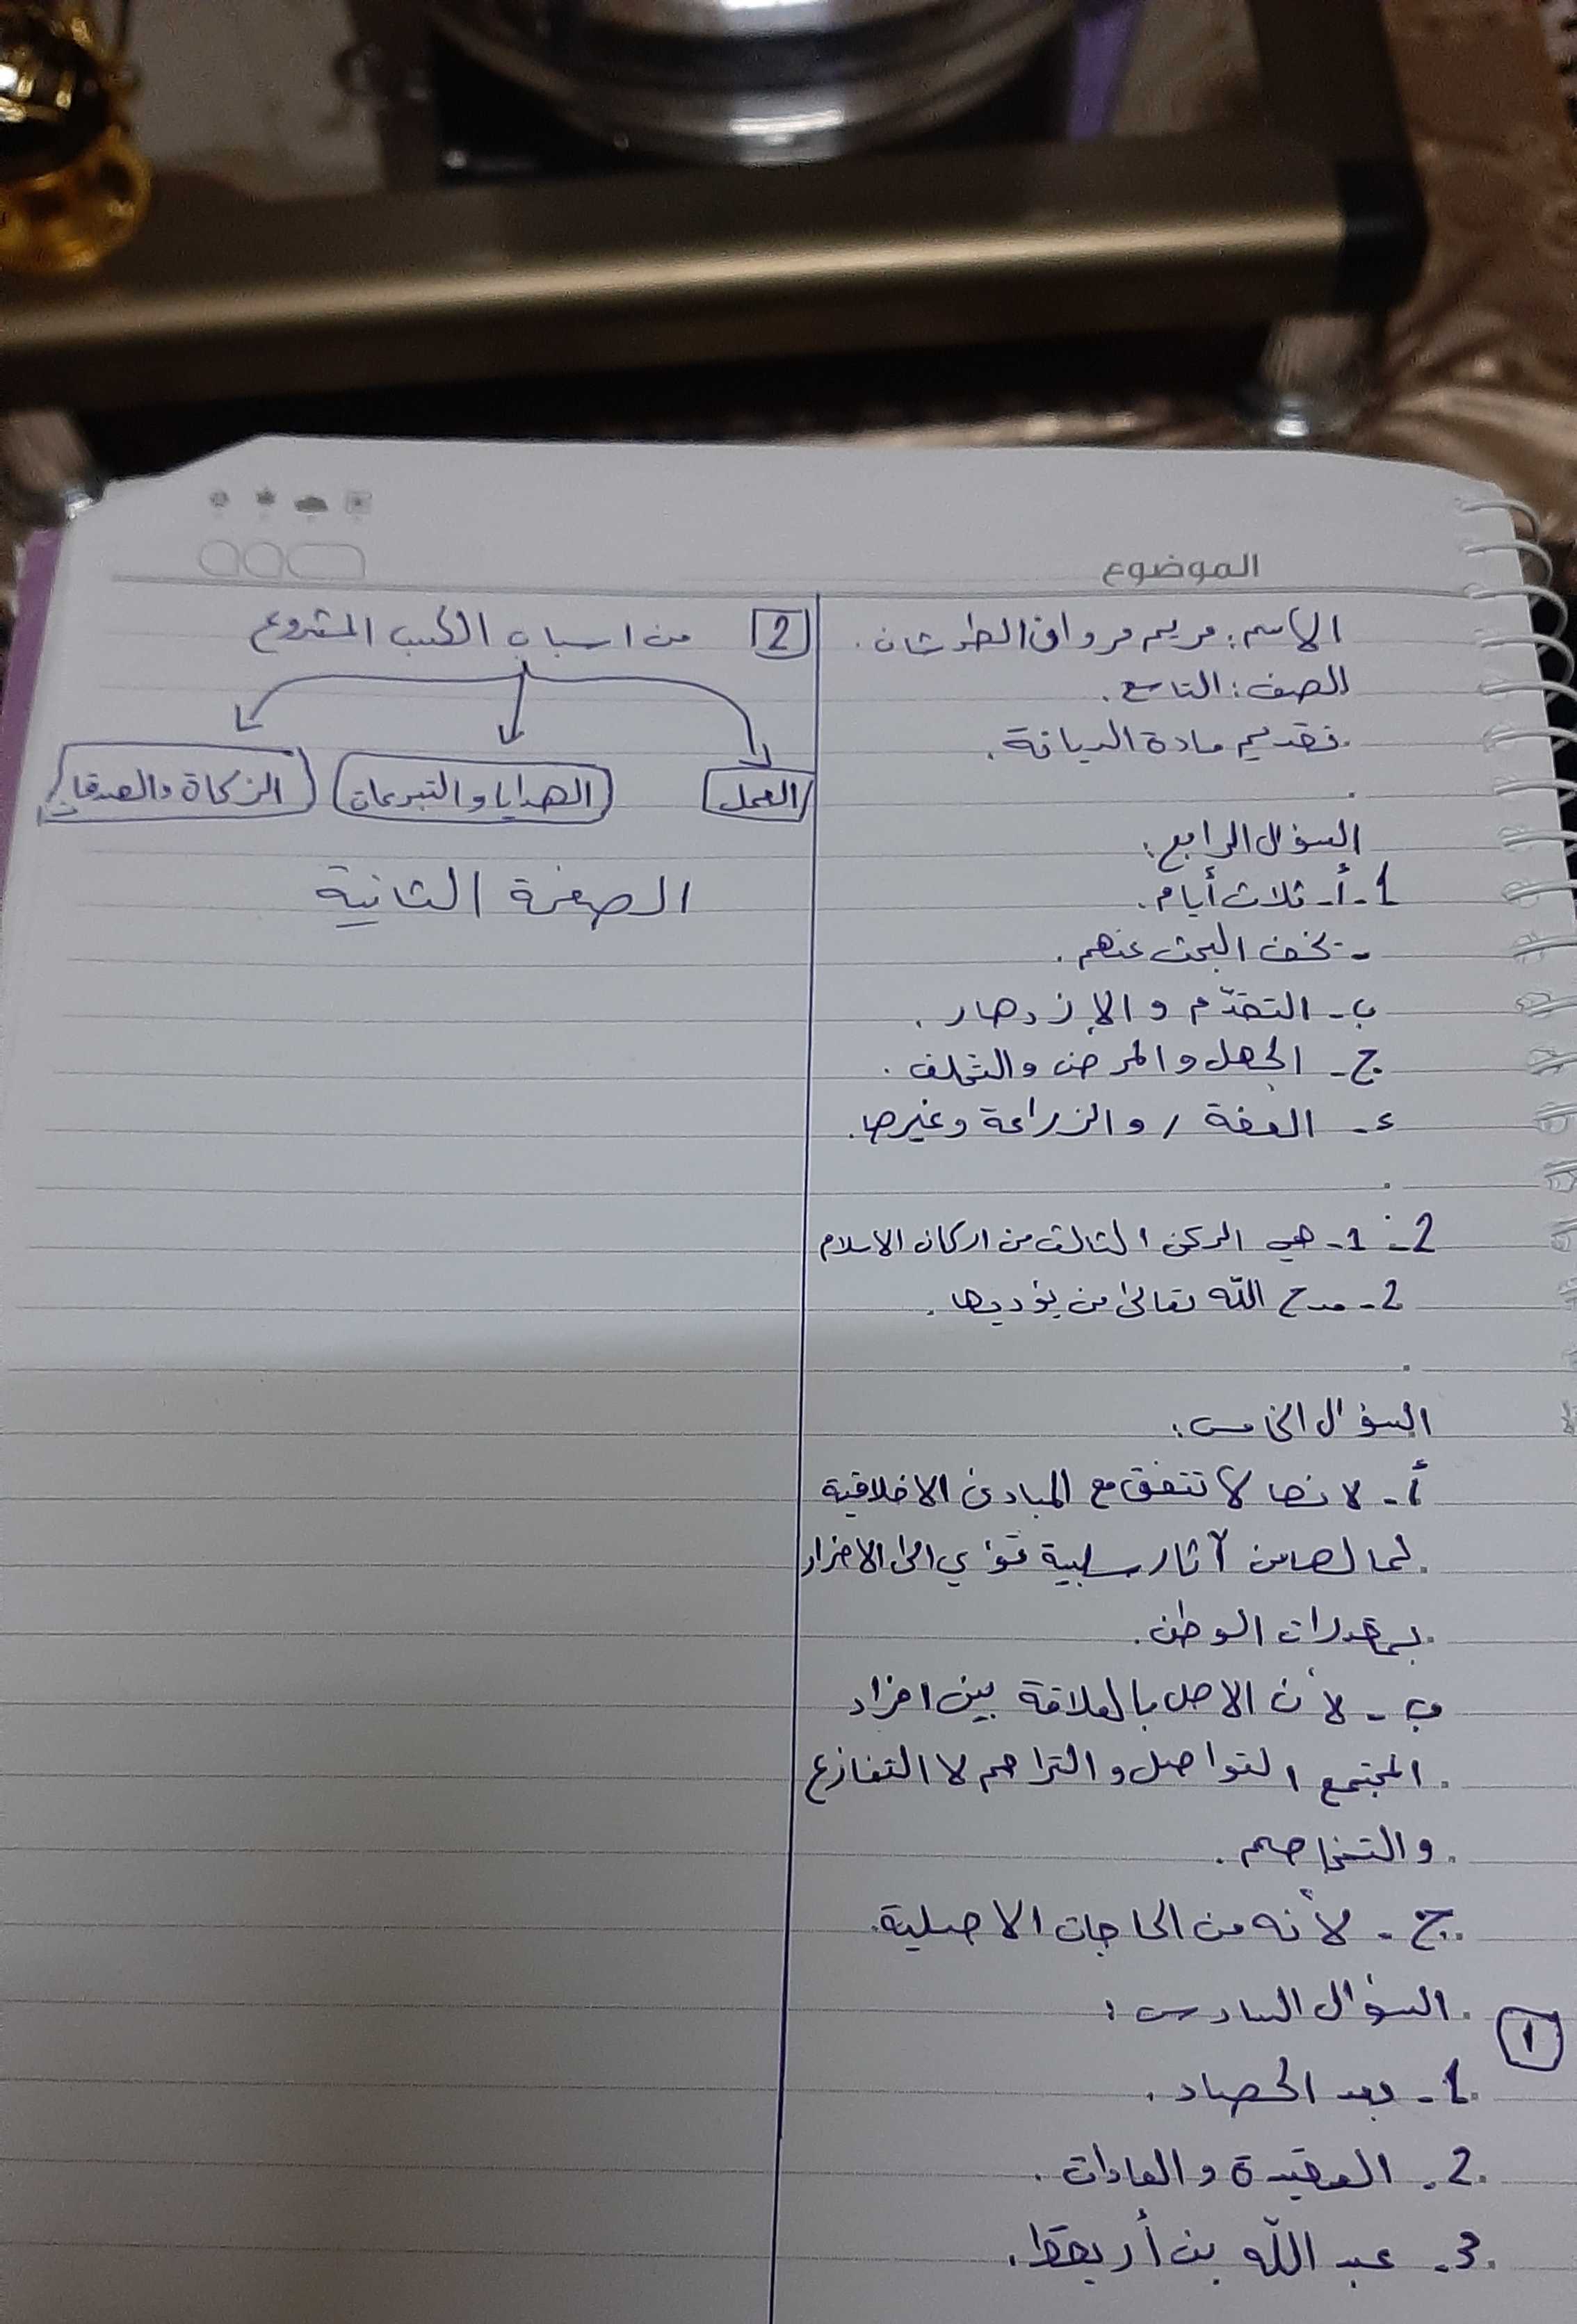 الموضوع
الاسم: مريم مروان الطرشان.
الصف: التاسع.
تقديم مادة الديانة.
السؤال الرابع:
1- أ- ثلاث أيام.
- تخف البحث عنهم.
ب- التقدّم والإزدهار.
ج- الجهل والمرض والتخلف.
د- العفة / والزراعة وغيرها.
2- 1- هي الركن الثالث من اركان الاسلام
2- مدح الله تعالى من يؤديها.
السؤال الخامس:
أ- لانها لا تتفق مع المبادئ الاخلاقية
لما لها من آثار سلبية تؤي الى الاضرار
بمقدرات الوطن.
ب- لأن الاصل بالعلاقة بين افراد
المجتمع التواصل والتراحم لا التنازع
والتخاصم.
ج- لأنه من الحاجات الاصلية.
السؤال السادس:
1
1- بعد الحصاد.
2. العقيدة والعادات.
3. عبد الله بن أريقط.
2 من اسباب الكسب المشروع
العمل
الهدايا والتبرعات
الزكاة والصدقات
الصفحة الثانية